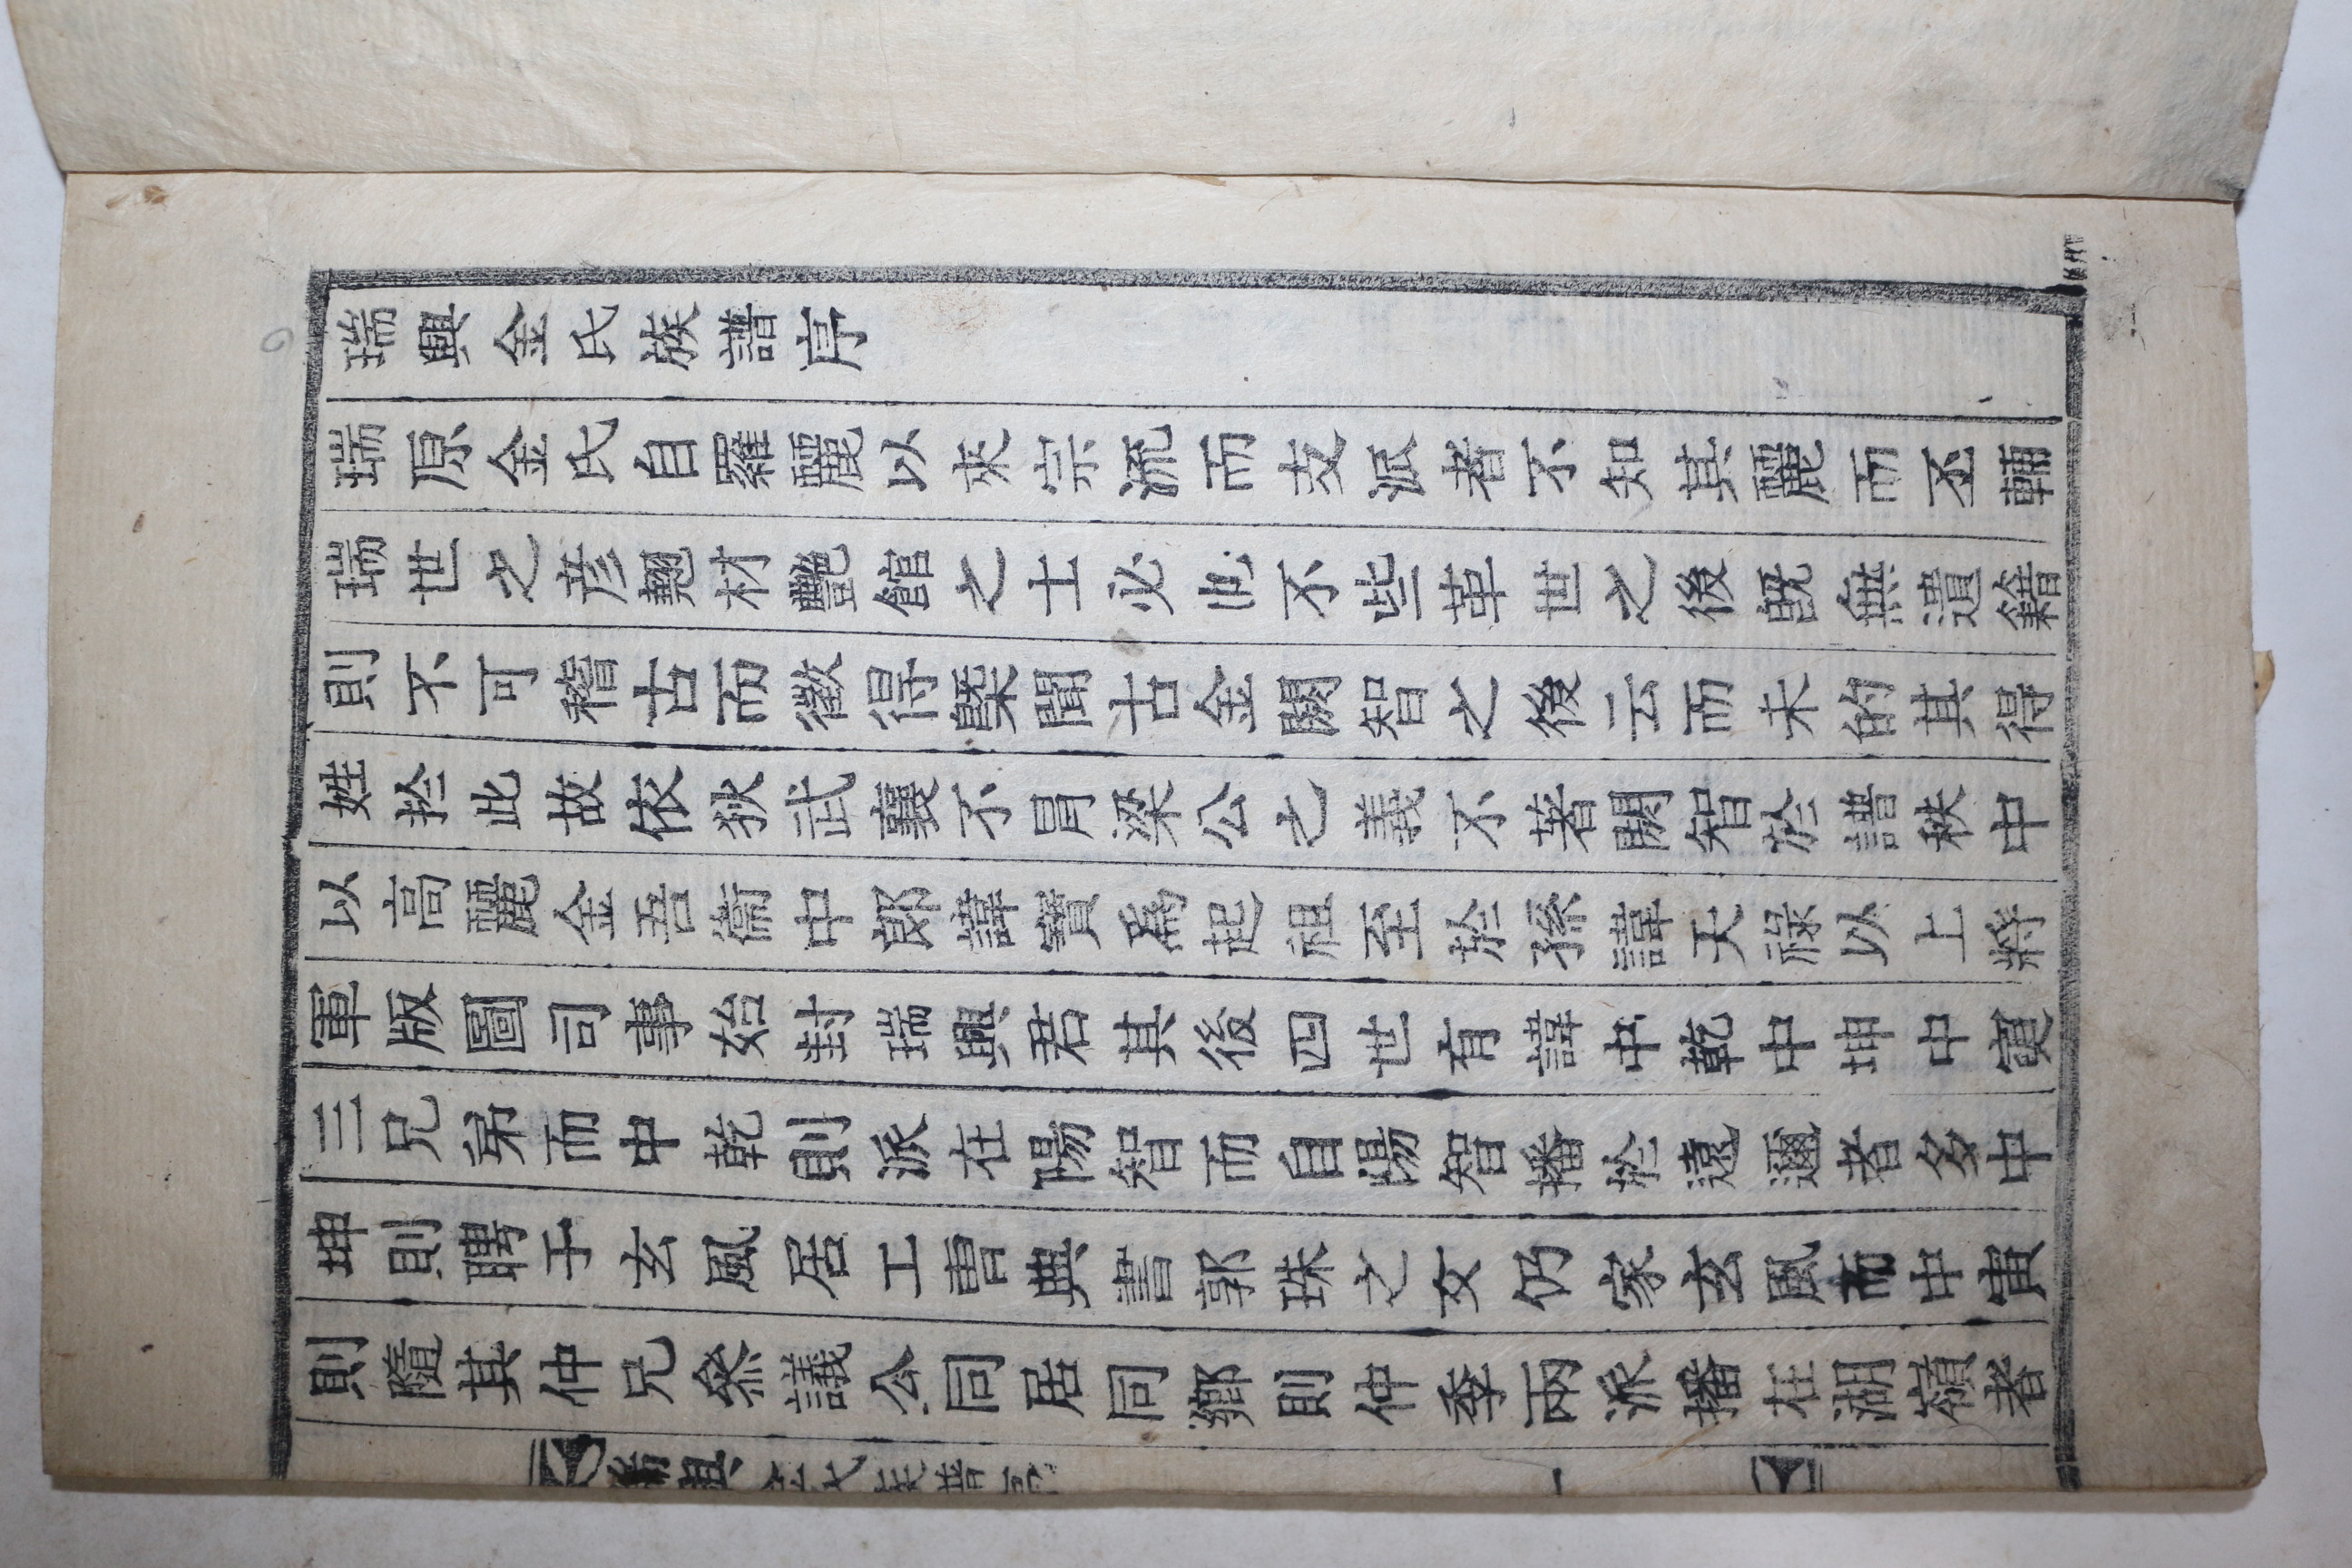 瑞興金氏族譜序
瑞原金氏自羅麗以來宗流而支派者不知其麗而丕輔
瑞世之彦翹材艶館之士必也不些革世之後旣無遺籍
則不可稽古而徵得槩聞古金閼智之後云而未的其得
姓於此故依狄武襄不冒梁公之義不著閼智於譜秩中
以高麗金吾衛中郞諱寶爲起祖至於孫諱天祿以上將
軍版圖司事始封瑞興君其後四世有諱中乾中坤中寅
三兄弟而中乾則派在陽智而自陽智播於遠邇者多中
坤則聘于玄風居工曺典書郭珠之女仍家玄風而中寅
則隨其仲兄叅議公同居同鄕則仲季兩派播在湖嶺者
瑞興金氏族譜序 一